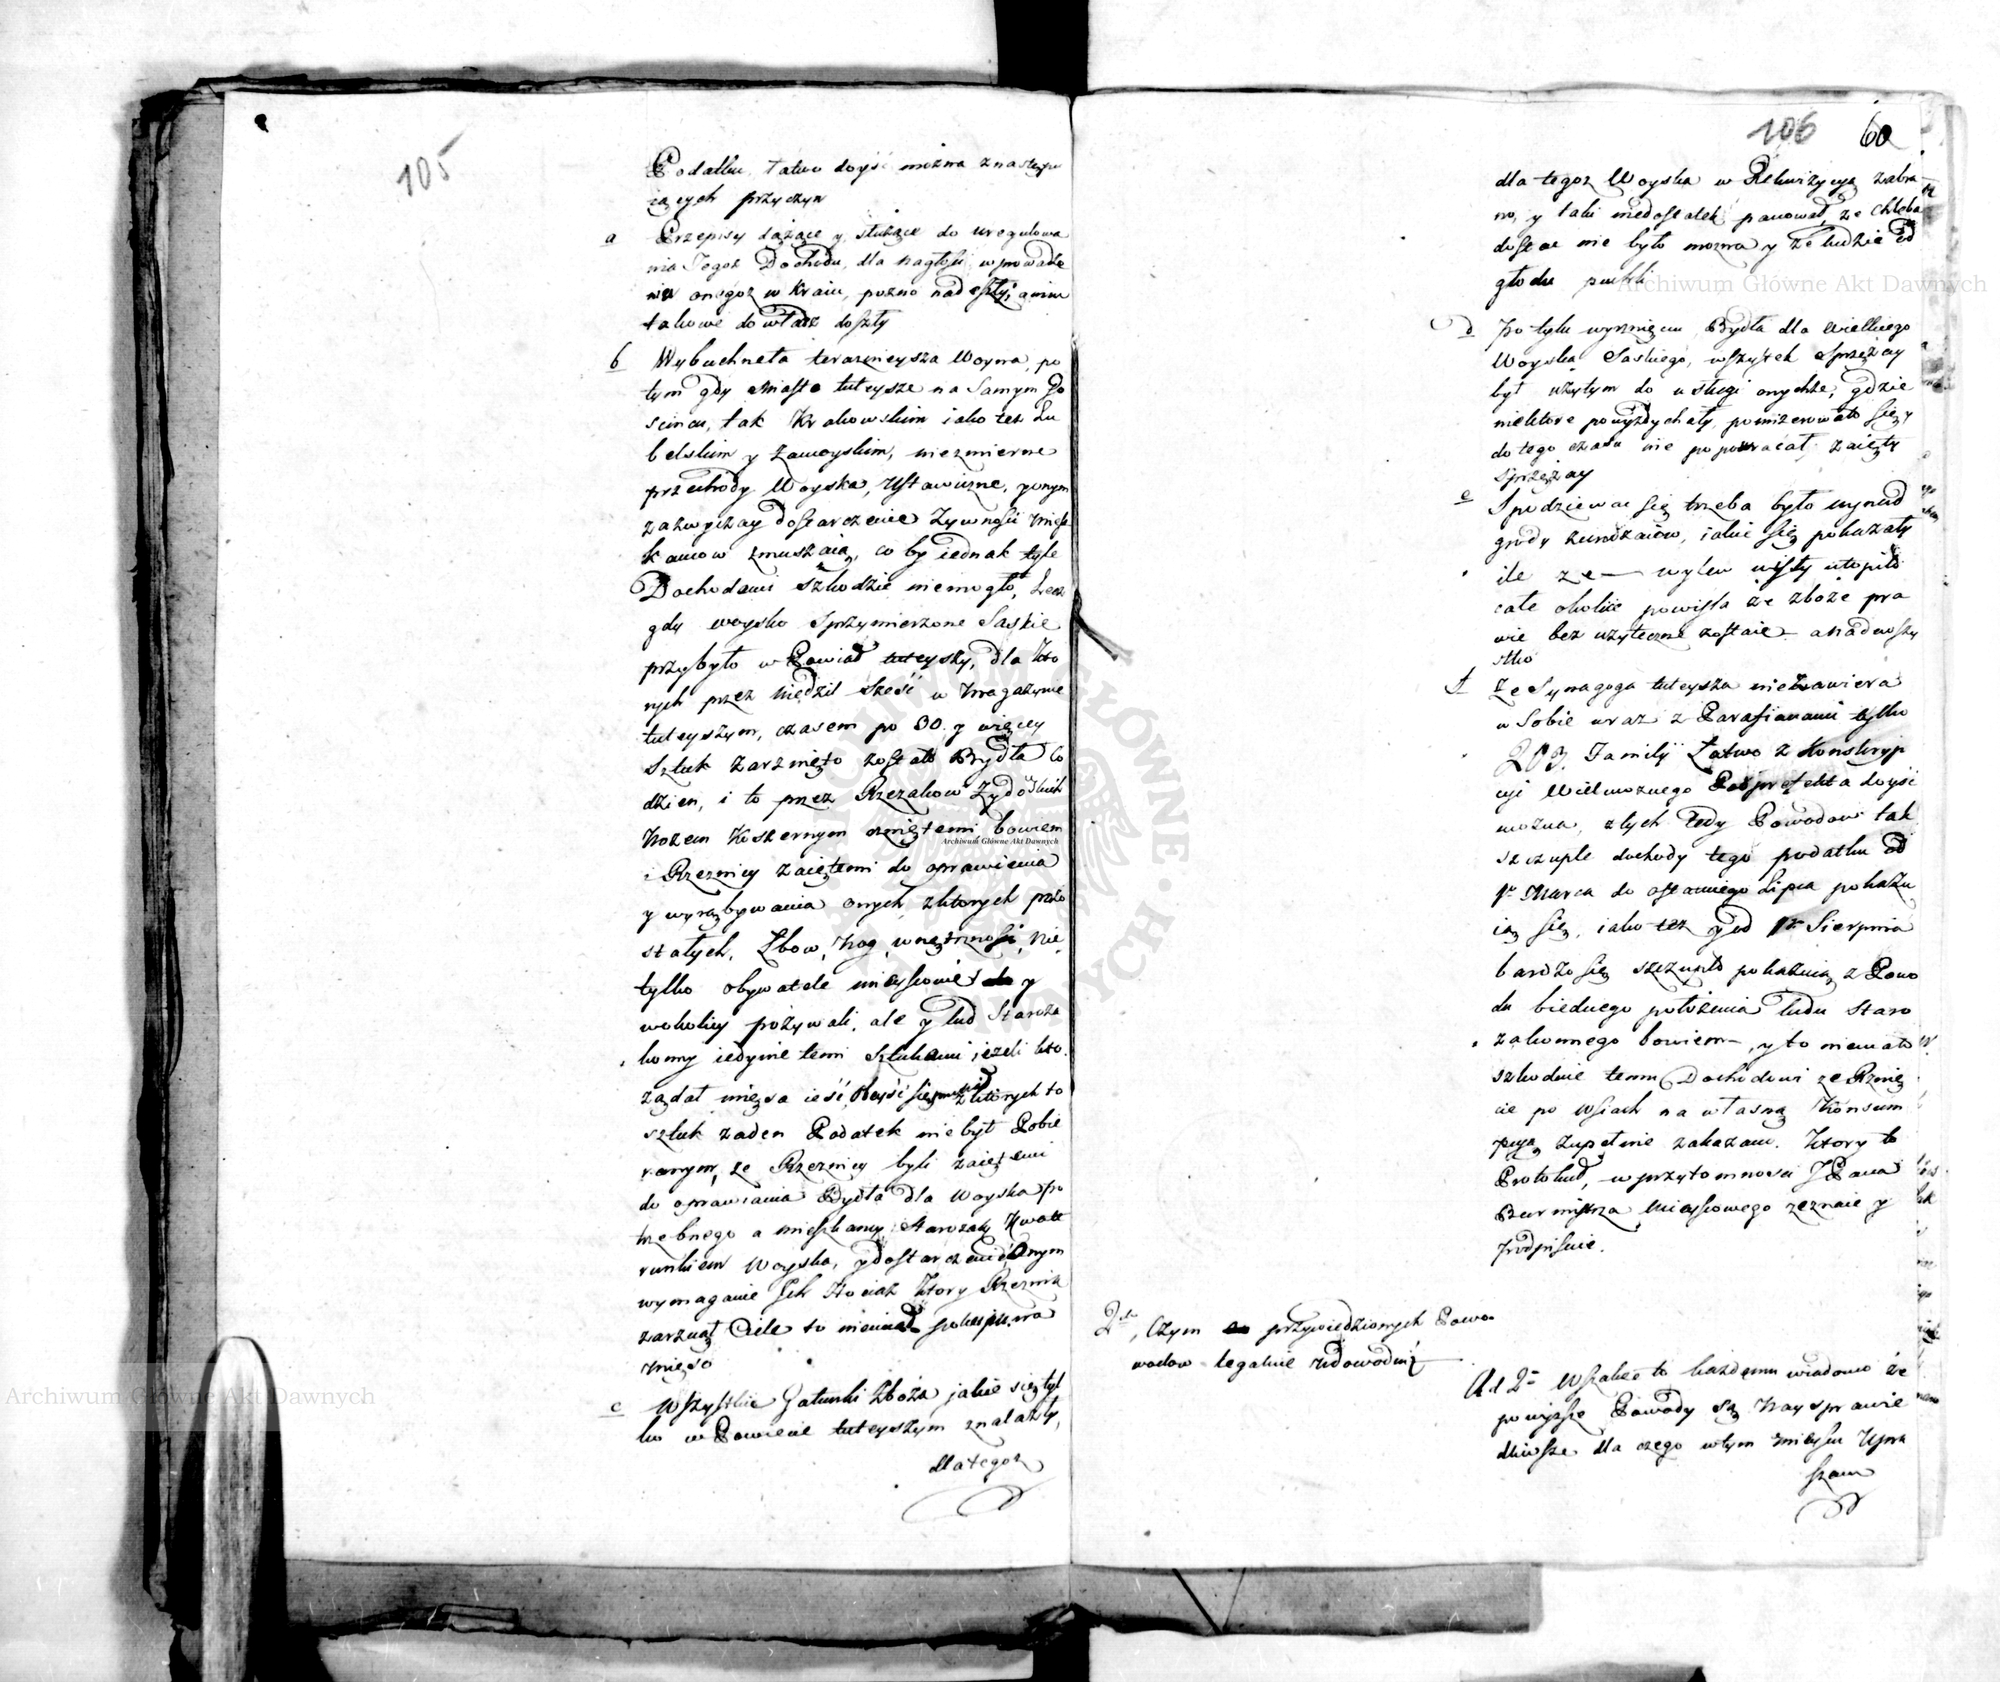 105
Podatku, łatwo doyść można z następu
iących przyczyn
a Przepisy dążące y służące do uregulowa
nia Tegoż Dochodu, dla nagłości wprowadze
nia onegoż w Kraiu, pozno nadeszły, a nim
takowe do władz doszły
b Wybuchneła teraznieysza Woyna, po
tym gdy Miasto tuteysze na Samym Go
scincu, tak Krakowskim iako też Lu
belskim y Zamoyskim, niezmierne
przechody Woyska, Ustawiczne, y onym
zazwyczay dostarczenie Zywnosci miesz
kancow zmuszaią, co by iednak tyle
Dochodowi szkodzić niemogło, Lecz
gdy woysko Sprzymierzone Saskie
przybyło w Powiad tuteyszy, dla Kto
rych przez niedzil Sześć w Magazynie
tuteyszym, czasem po 30. y więcey
Sztuk zarznięto zostało Bydła Co
dzien, i to przez Rzezakow Zydoskich
Nożem Koszernym rzniętemi bowiem
i Rzeznicy zaiętemi do oprawienia
y wyrąbywania onych, z ktorych pozo
stałych, Łbow, Nog, wnętrznosci, nie
tylko obywatele mieyscowi y
wokolicy pożywali, ale y lud Staroza
konny iedynie temi Sztukami, ieżeli kto
żądał mięsa ieść, obeyść się musiał z ktorych to
sztuk żaden Podatek nie był Pobie
ranym, że Rzeznicy byli zaiętemi
do oprawiania Bydła dla Woyska po
trzebnego a mieszkancy Starozak: Kwate
runkiem Woyska, y dostarczenie Onym
wymaganie Ich chociaż Ktory Rzeznik
zarznął Ciele to niemiał pokupu na
mięso
c Wszystkie Gatunki Zboża, jakie się tyl
ko w Powiecie tuteyszym znalazły,
dlategoż
106 60
dla tegoż Woyska w Rekwizycyą zabra
no, y taki niedostatek panował, że Chleba
dostać nie było można y że ludzie od
głodu puchli
d Po tylu wyrznięciu Bydła dla Wielkiego
Woyska Saskiego, wszystek Sprzężay
był użytym do usługi onychże, gdzie
niektore powyzdychały, pomizerowało się y
do tego czasu nie popowracał zaięty
Sprzężay
e Spodziewać się trzeba było wynad
grody urodzaiow, iakie się pokazały
ile że wylew wisły utopiło
całe okolice powisla że zboże pra
wie bez użyteczne zostaie a nadewszy
stko
f Że Synagoga tuteysza nie zawiera
w Sobie wraz z Parafianami tylko
203. Familÿ Łatwo z Konskryp
cyi Wielmożnego Podprefekta doyść
można, z tych tedy Powodow tak
szczupłe dochody tego podatku od
1o Marca do ostatniego Lipca pokazu
ią się, iako też y od 1o Sierpnia
bardzo się szczupło pokazuią z Powo
du biednego położenia ludu Staro
zakonnego bowiem y to niemało
szkodzie temu Dochodowi że Rznię
cie po Wsiach na własną Konsum
pcyą zupełnie zakazano. Ktory to
Protokuł, w przytomnosci JPana
Burmistrza Mieyscowego zeznaie y
podpisuie.
2do, Czym przywiedzionych Powo
wodow legalnie udowodnić
Ad 2m Wszakże to każdemu wiadomo że
powyższe Powody są Naysprawie
dliwsze dla czego w tym mieyscu Upra
szam